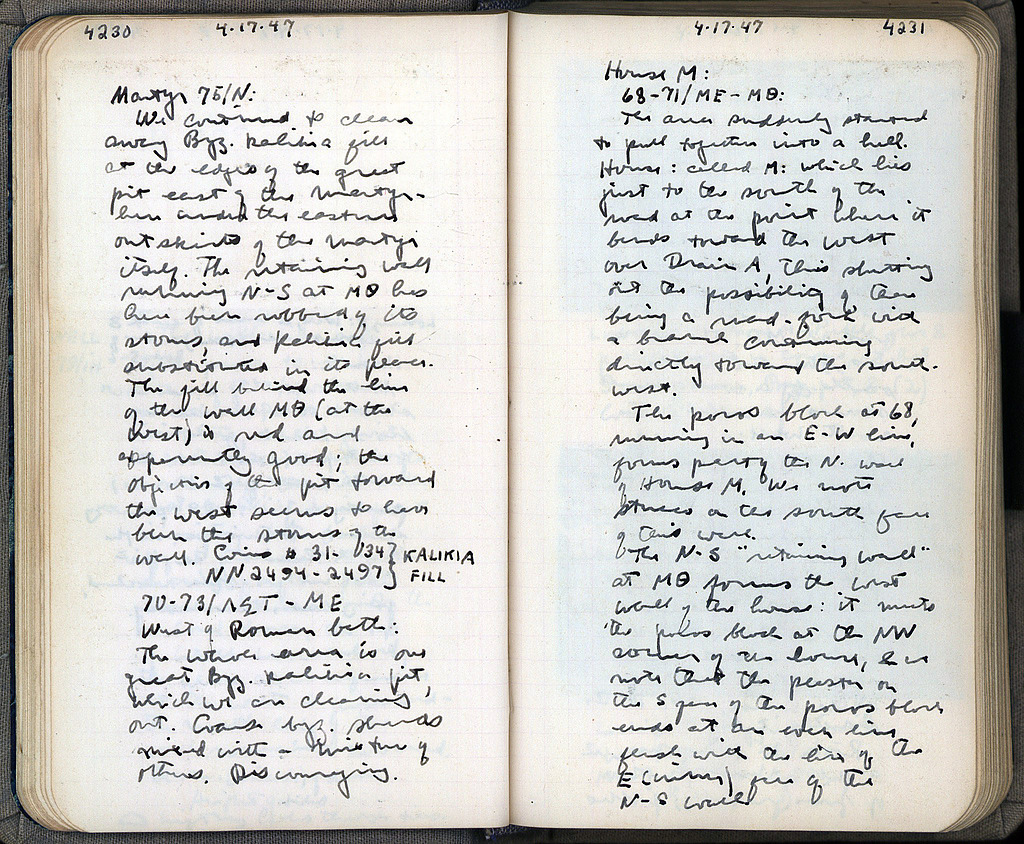 4230 4·17·47
Martyr 75/N:
We continued to clean
away Byz. kalikia fill
at the edges of the great
pit east of the Martyr-
ion under the eastern
outskirts of the martyr
itself. The retaining wall
running N-S at ΜΘ has
here been robbed of its
stones, and kalikia fill
substituted in its place.
The fill behind the line
of the wall ΜΘ (at the
West) is red and
apparently good; the
objective of the pit toward
the west seems to have
been the stones of the
wall. Coins 31-34 } KALIKIA
NN 2494-2497 } FILL
70-73/ - ΜΕ
West of Roman bath:
The whole area is one
great Byz. kalikia pit,
which we are cleaning
out. Coarse byz. sherds
mixed with a mixture of
others. Discouraging.
4·17·47 4231
House M:
68-71/ΜΕ-ΜΘ:
The area suddenly started
to pull together into a hell.
House: called M: which lies
just to the south of the
road at the point where it
bends toward the west
over Drain A, thus shutting
out the possibility of there
being a road-fork with
a branch continuing
directly toward the south-
west.
The poros block at 68,
running in an E-W line,
forms part of the N. wall
of House M. We note
stucco on the south face
of this wall.
The N-S "retaining wall"
at ΜΘ forms the west
wall of the house: it meets
the poros block at the NW
corner of the house, &
note that the plaster on
the S face of the poros block
ends at an even line
flush with the line of the
E (inner) face of the
N-S wall